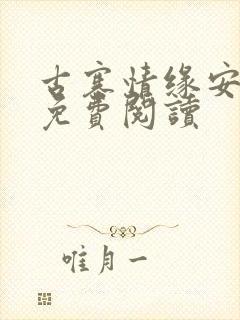 古寨情缘安
免費閱讀
唯月一